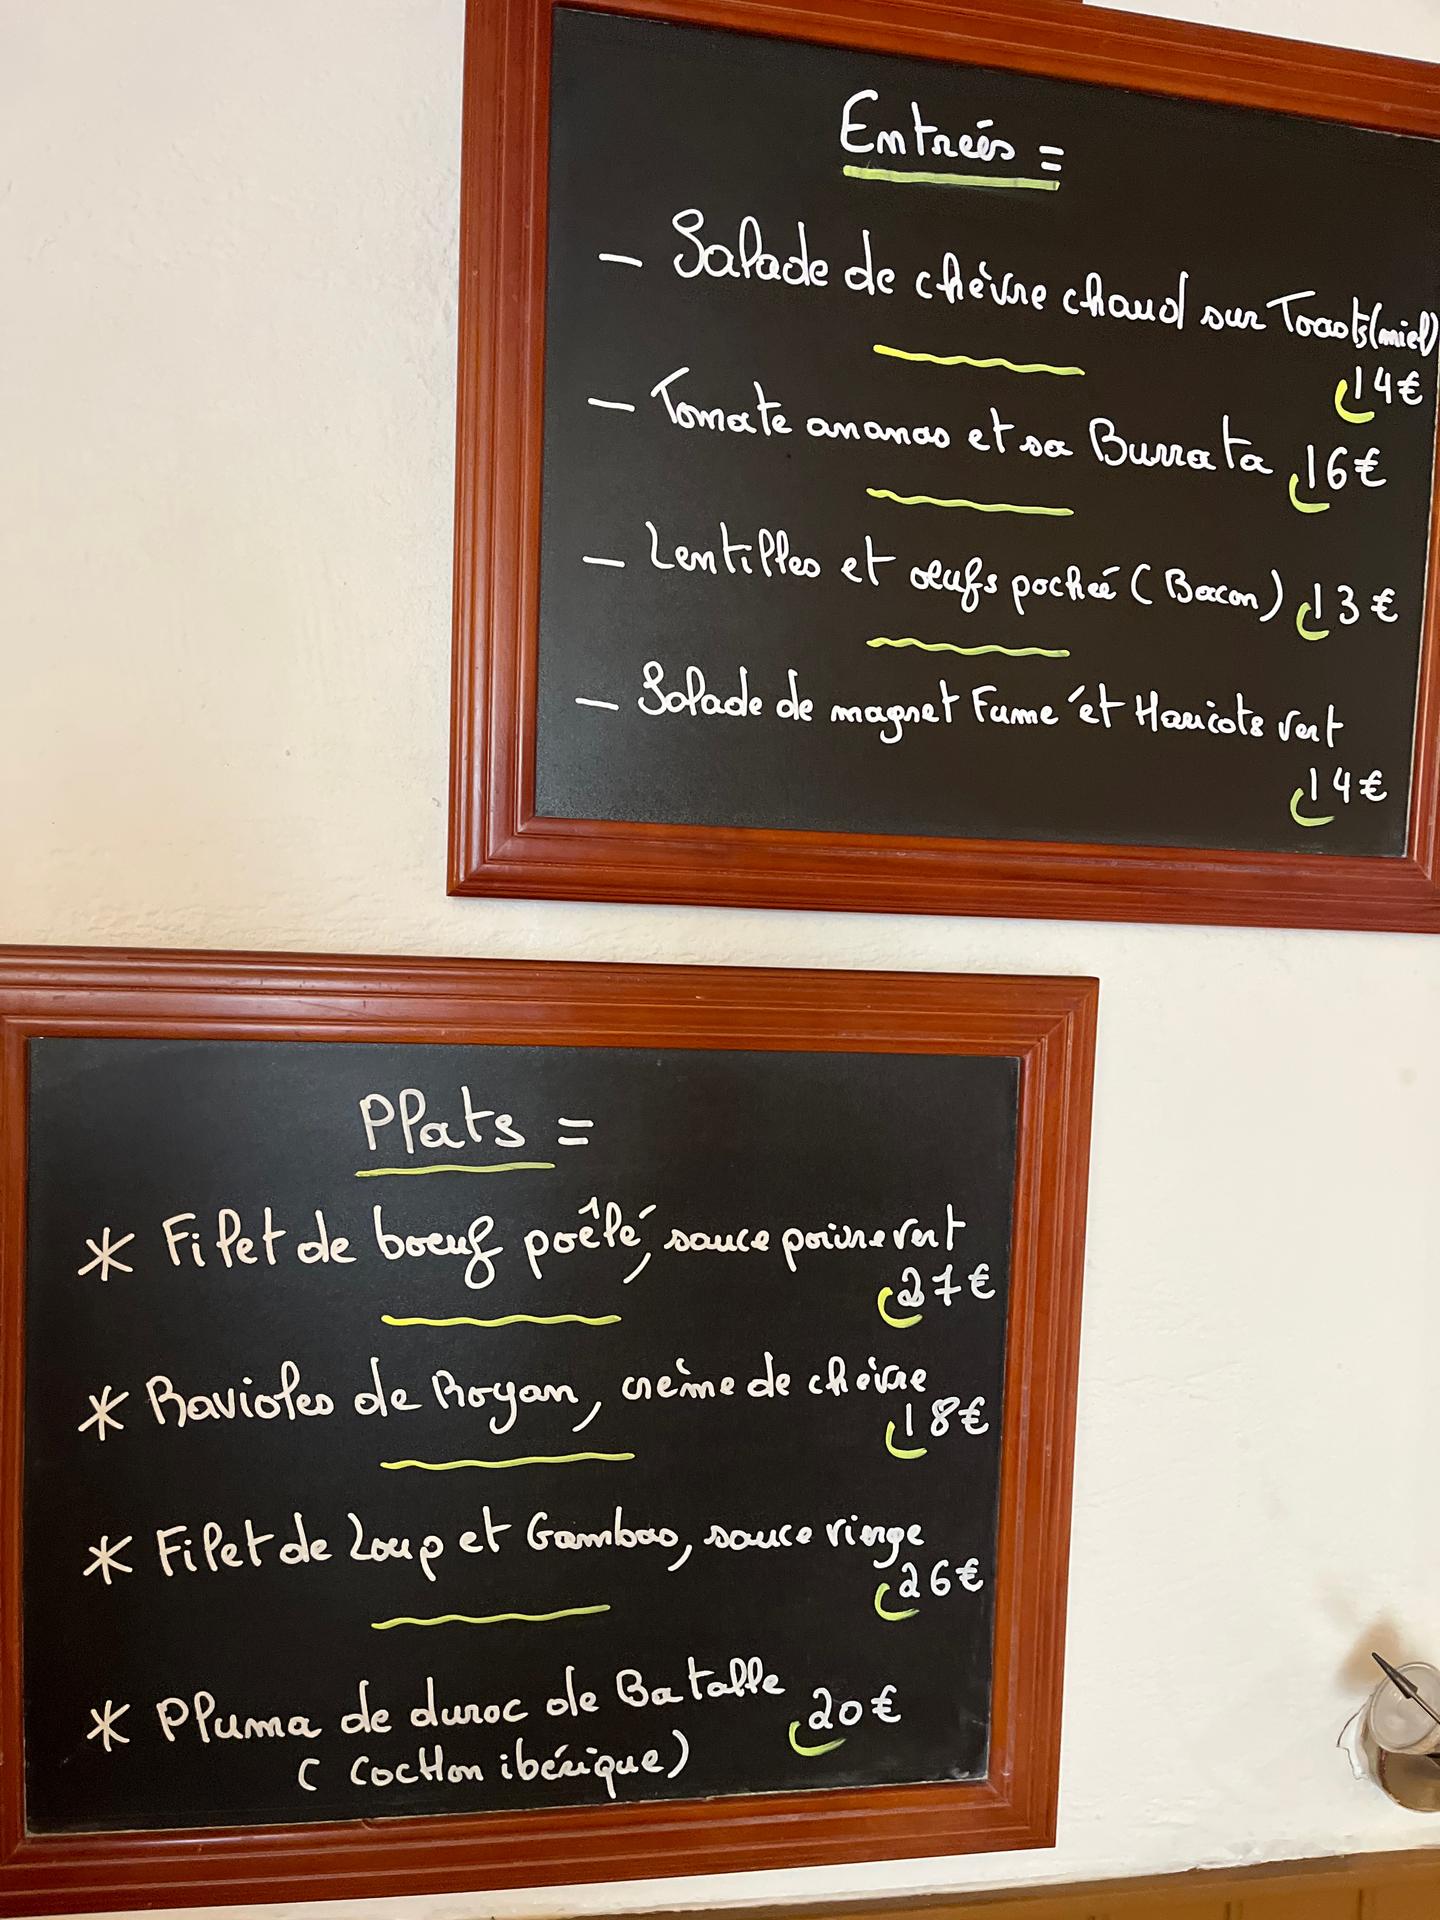 Entrées =
- Salade de chèvre chaud sur Toasts (miel)
14€
- Tomate ananas et sa Burrata 16€
- Lentilles et œufs poché (Bacon) 13€
- Salade de magret Fumé et Haricots vert
14€
Plats =
* Filet de boeuf poêlé, sauce poivre vert
27€
* Ravioles de Royan, crème de chèvre
18€
* Filet de Loup et Gambas, sauce vierge
26€
* Pluma de duroc de Batalle 20€
(Cochon ibérique)